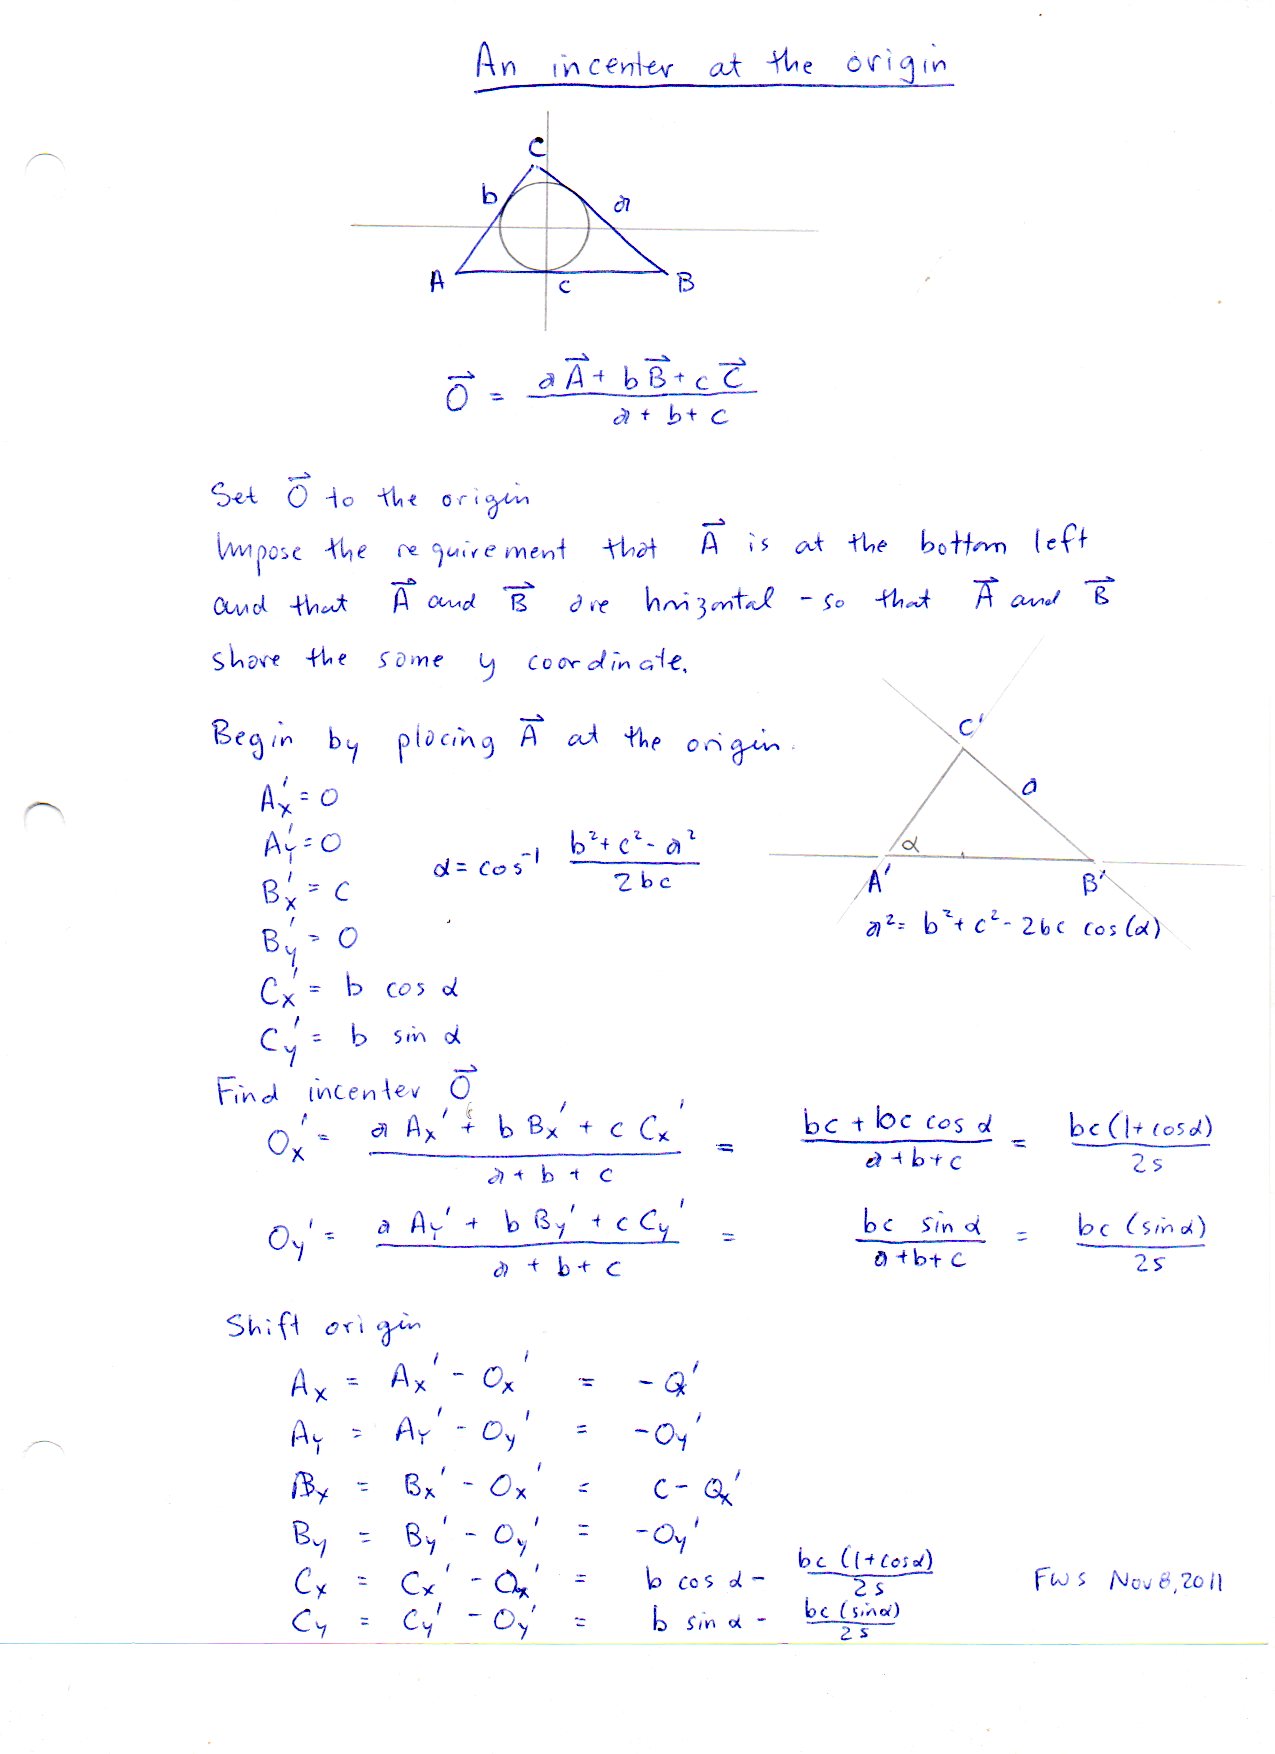 An incenter at the origin
C
b a
A c B
O⃗ = (a A⃗ + b B⃗ + c C⃗) / (a + b + c)
Set O⃗ to the origin
Impose the requirement that A⃗ is at the bottom left
and that A⃗ and B⃗ are horizontal - so that A⃗ and B⃗
share the same y coordinate.
Begin by placing A⃗ at the origin.
C'
a
α
A' B'
a² = b² + c² - 2bc cos(α)
Ax' = 0
Ay' = 0
α = cos⁻¹ (b² + c² - a²) / 2bc
Bx' = c
By' = 0
Cx' = b cos α
Cy' = b sin α
Find incenter O⃗
Ox' = (a Ax' + b Bx' + c Cx') / (a + b + c) = (bc + bc cos α) / (a + b + c) = bc (1 + cos α) / 2s
Oy' = (a Ay' + b By' + c Cy') / (a + b + c) = bc sin α / (a + b + c) = bc (sin α) / 2s
Shift origin
Ax = Ax' - Ox' = - Ox'
Ay = Ay' - Oy' = - Oy'
Bx = Bx' - Ox' = c - Ox'
By = By' - Oy' = - Oy'
Cx = Cx' - Ox' = b cos α - bc (1 + cos α) / 2s
Cy = Cy' - Oy' = b sin α - bc (sin α) / 2s
FWS Nov 8, 2011